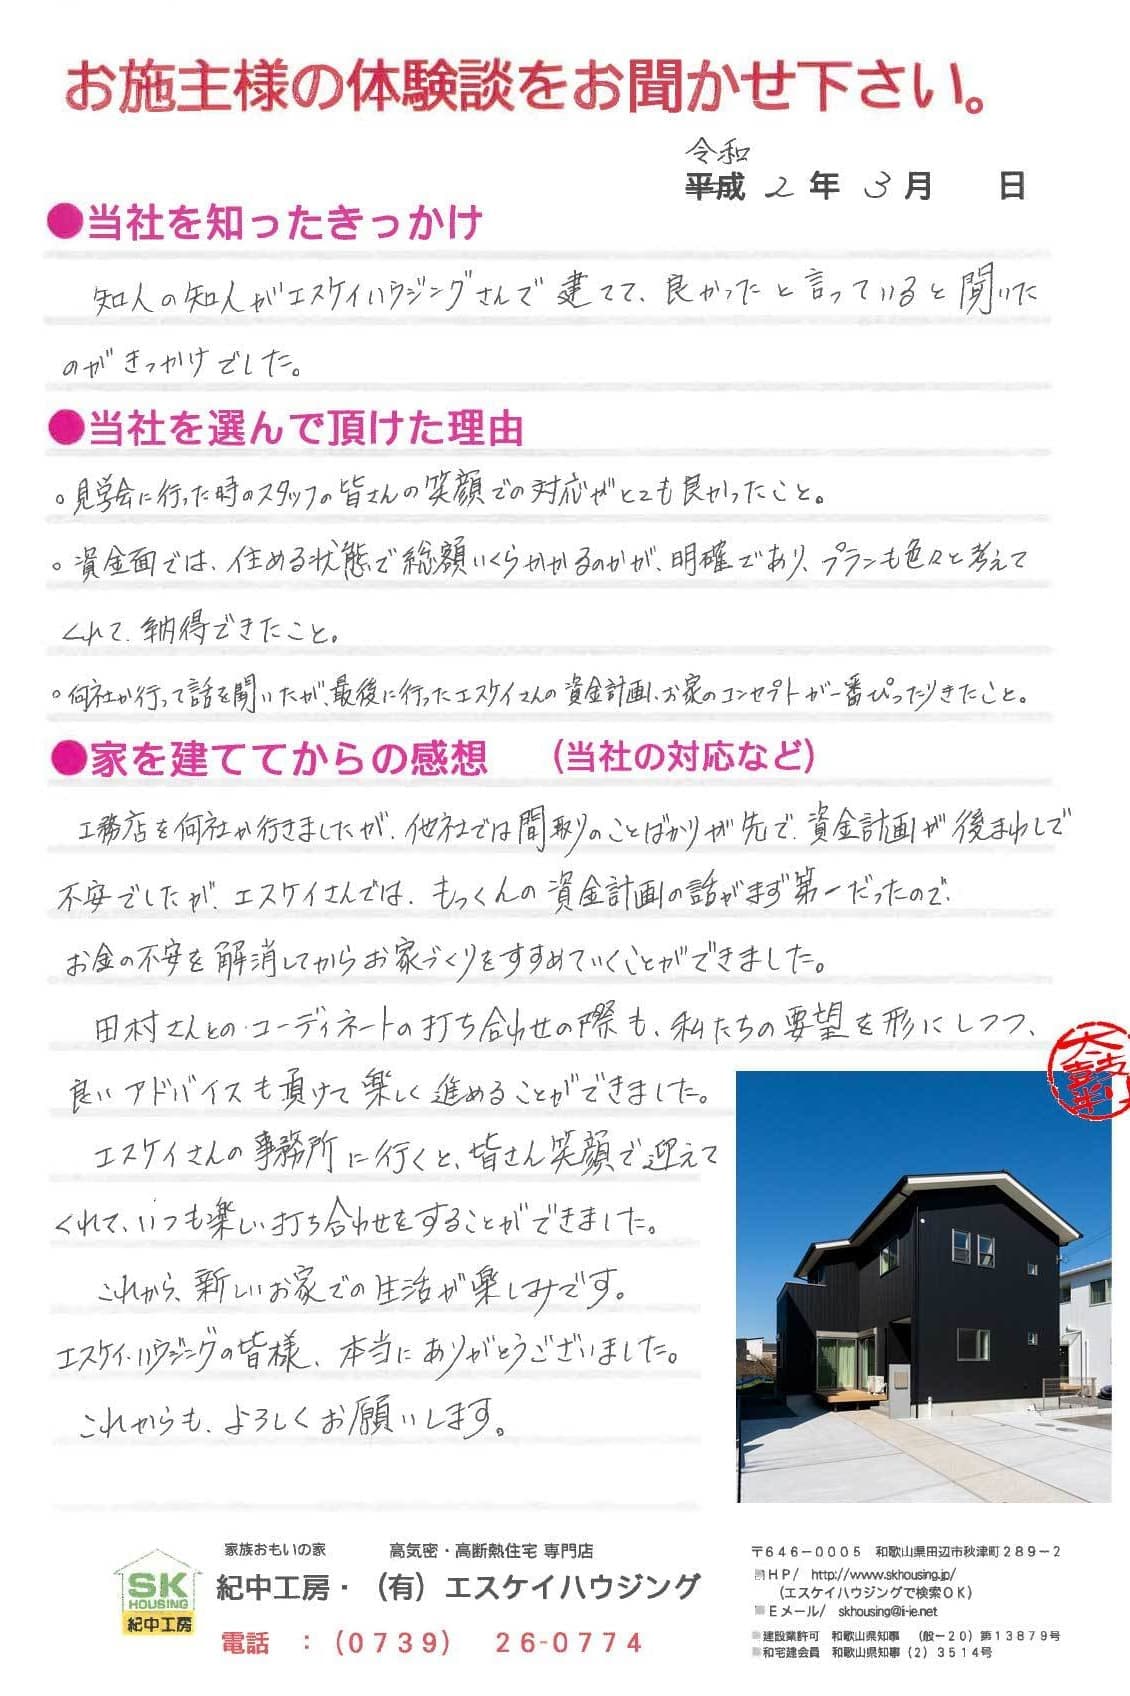 お施主様の体験談をお聞かせ下さい。
令和
平成 2 年 3 月 日
●当社を知ったきっかけ
知人の知人がエスケイハウジングさんで建てて、良かったと言っていると聞いた
のがきっかけでした。
●当社を選んで頂けた理由
○見学会に行った時のスタッフの皆さんの笑顔での対応がとても良かったこと。
○資金面では、住める状態で総額いくらかかるのかが、明確であり、プランも色々と考えて
くれて、納得できたこと。
○何社か行って話を聞いたが、最後に行ったエスケイさんの資金計画、お家のコンセプトが一番ぴったりきたこと。
●家を建ててからの感想 (当社の対応など)
工務店を何社か行きましたが、他社では間取りのことばかりが先で、資金計画が後まわしで
不安でしたが、エスケイさんでは、もっくんの資金計画の話がまず第一だったので、
お金の不安を解消してからお家づくりをすすめていくことができました。
田村さんとのコーディネートの打ち合わせの際も、私たちの要望を形にしつつ、
良いアドバイスも頂けて楽しく進めることができました。
エスケイさんの事務所に行くと、皆さん笑顔で迎えて
くれて、いつも楽しい打ち合わせをすることができました。
これから、新しいお家での生活が楽しみです。
エスケイ・ハウジングの皆様、本当にありがとうございました。
これからも、よろしくお願いします。
家族おもいの家 高気密・高断熱住宅 専門店
SK
HOUSING
紀中工房
紀中工房・(有)エスケイハウジング
電話 :(0739) 26-0774
〒646-0005 和歌山県田辺市秋津町289-2
HP/ http://www.skhousing.jp/
(エスケイハウジングで検索OK)
Eメール/ skhousing@i-ie.net
建設業許可 和歌山県知事 (般-20)第13879号
和宅建会員 和歌山県知事(2)3514号